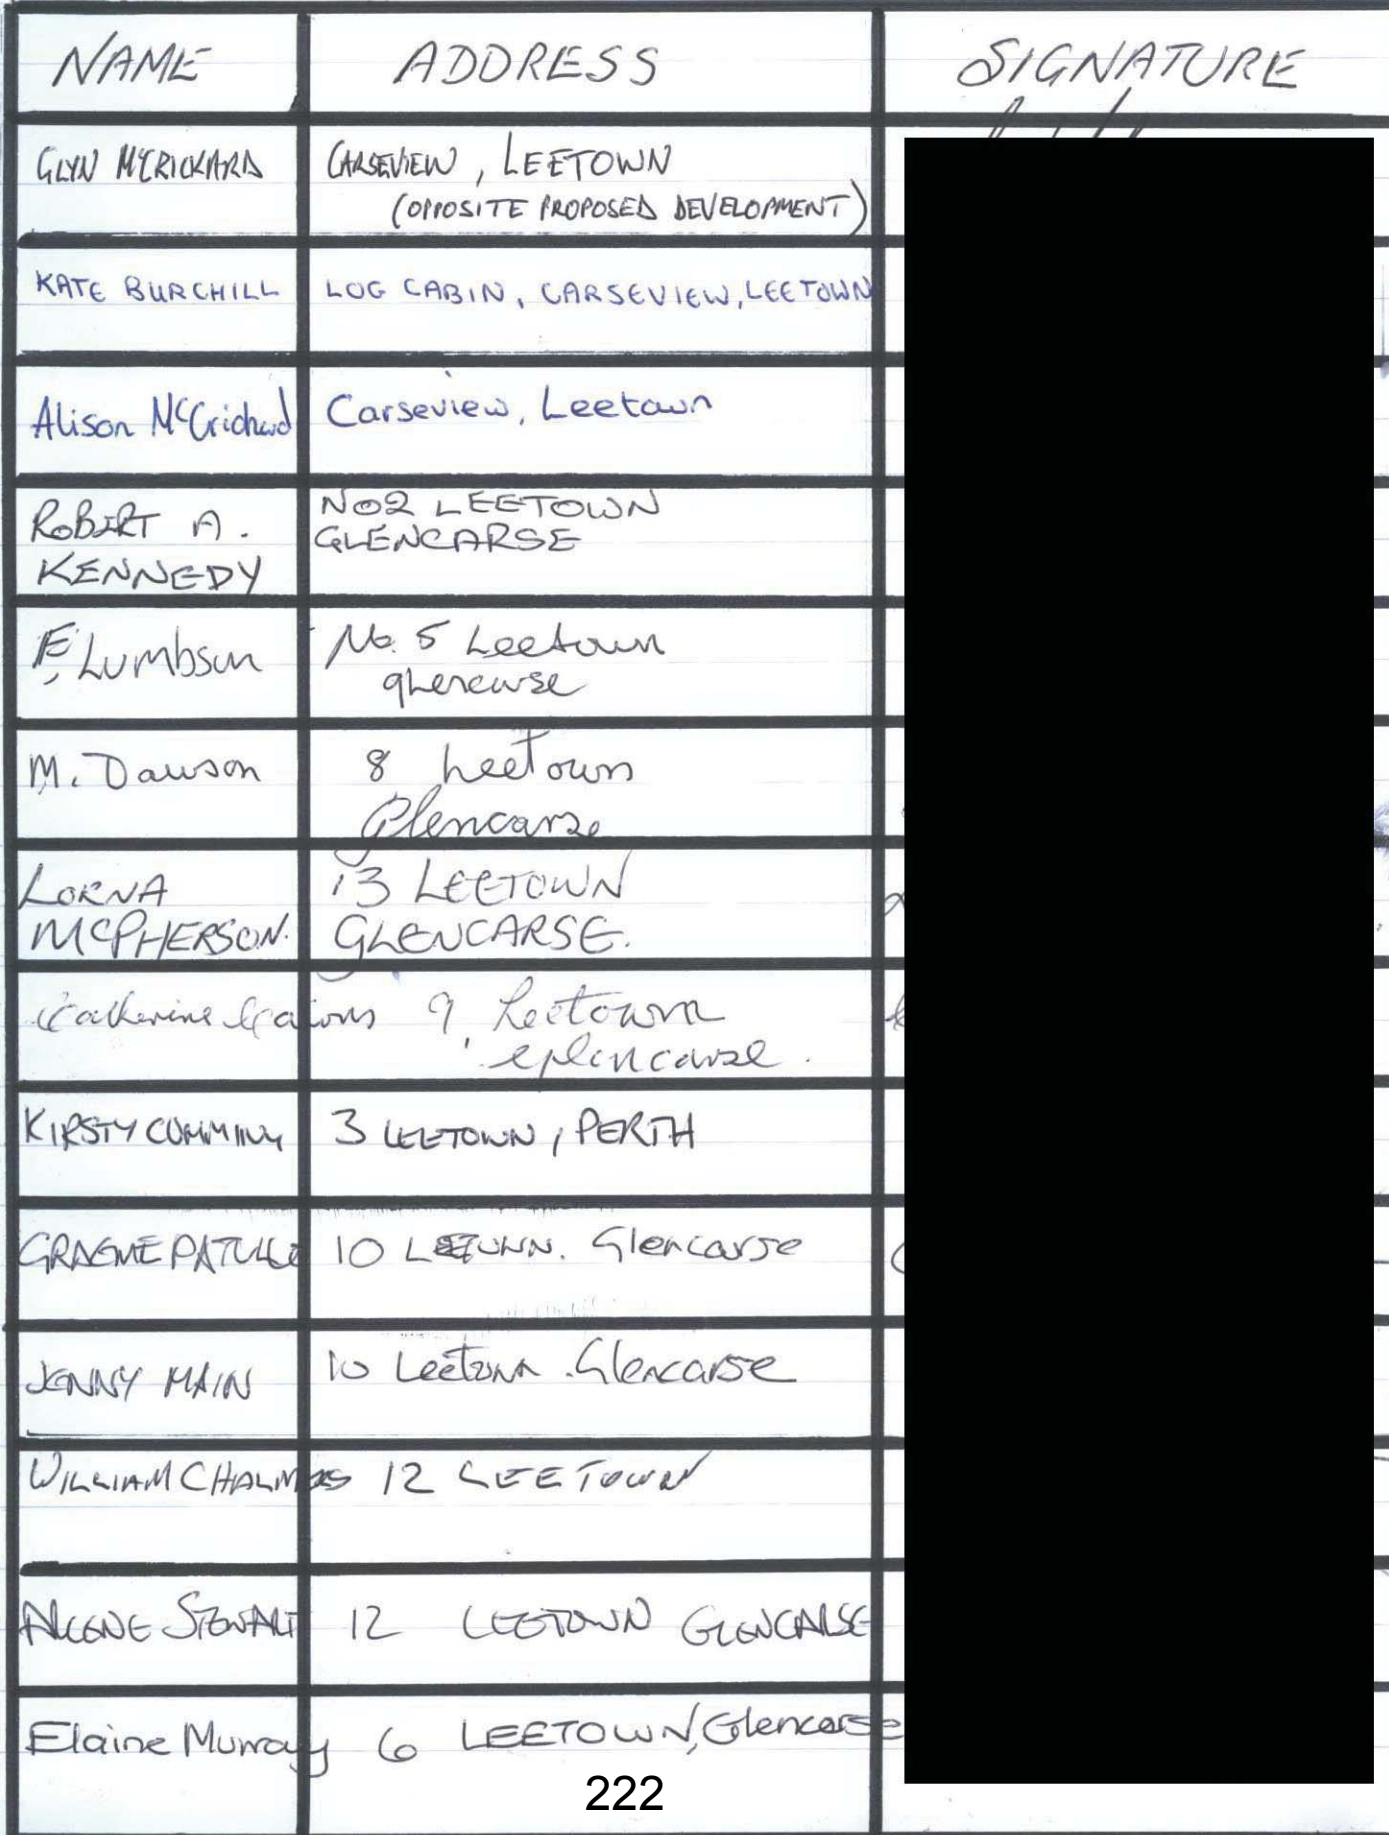 NAME ADDRESS SIGNATURE
GLYN MCCRICKARD CARSEVIEW, LEETOWN
(OPPOSITE PROPOSED DEVELOPMENT)
KATE BURCHILL LOG CABIN, CARSEVIEW, LEETOWN
Alison McCrickard Carseview, Leetown
ROBERT A. NO2 LEETOWN
KENNEDY GLENCARSE
No. 5 Leetown
glencarse
M. Dawson 8 Leetown
Glencarse
LORNA 13 LEETOWN
MCPHERSON. GLENCARSE.
Catherine 9, Leetown
Glencarse.
KIRSTY CUMMING 3 LEETOWN, PERTH
GRAEME PATULLO 10 LEETOWN. Glencarse
JENNY MAIN 10 Leetown. Glencarse
WILLIAM CHALMERS 12 LEETOWN
STEWART 12 LEETOWN GLENCARSE
Elaine Murray 6 LEETOWN, Glencarse
222